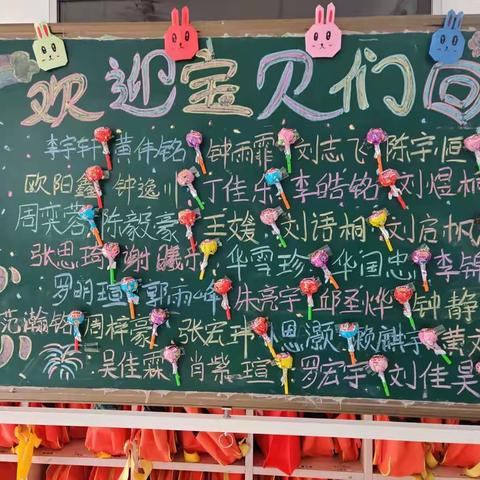 欢迎宝贝们回
李宇轩 黄伟铭 钟雨霏 刘志飞 陈宇恒
欧阳鑫 钟逸川 丁佳乐 李皓铭 刘煜桐
周奕蓉 陈毅豪 王媛 刘语桐 刘启帆
张思琦 谢曦 华雪珍 华闰忠 李锦
罗明瑄 郭雨 朱亮宇 邱圣烨 钟静
范瀚铭 周梓豪 张宏玮 恩灏 赖麒宇 黄
吴佳霖 肖紫瑄 罗宏宇 刘佳昊